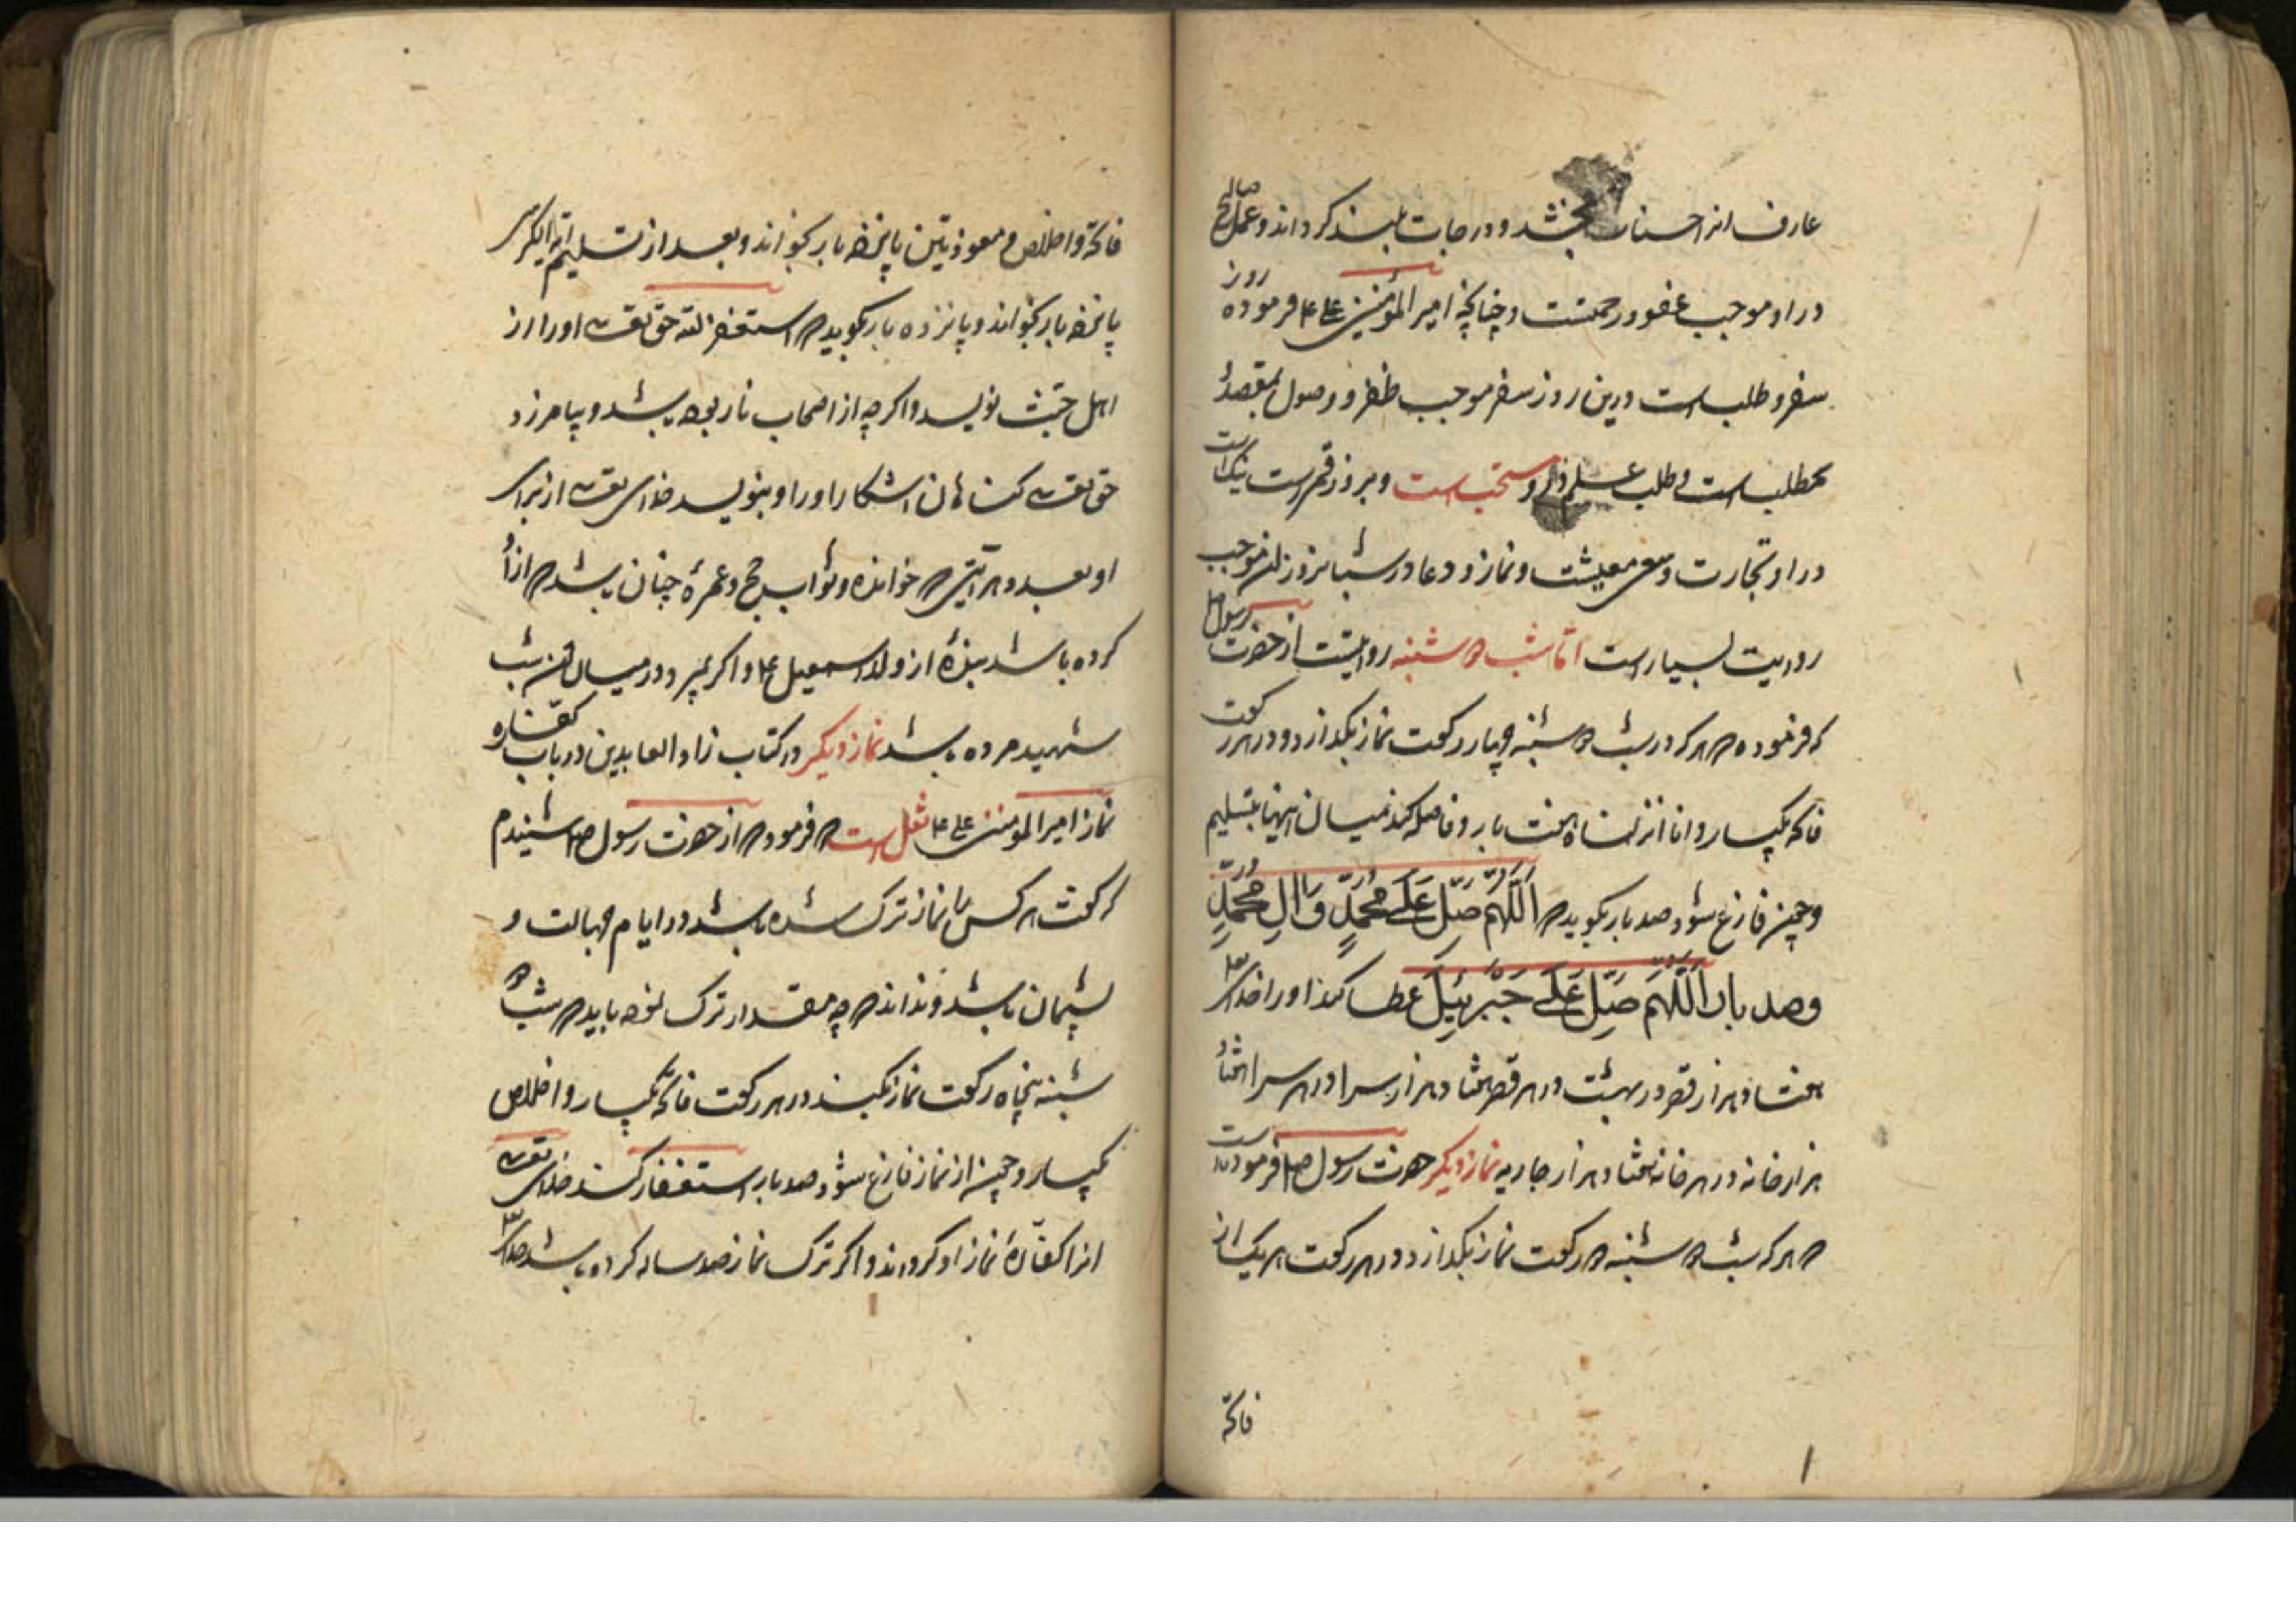 عارف انرا حسنات بخشد و درجات بلند کرداند و عمل صالح
در او موجب عفو و رحمتست و چنانچه امیر المؤمنین علی ع فرموده روز
سفر و طلب است درین روز سفر موجب ظفر و وصول بمقصد
طلب علم و مستحب است و بروز قمر است نیک است
در او تجارت و سعی معیشت و نماز و دعا در شبانروز ان موجب
روایت بسیار است اما شب دوشنبه روایتست از حضرت رسول ص
که فرموده که هر که در شب دوشنبه چهار رکعت نماز بکذارد و در هر رکعت
فاتحه یکبار و انا انزلناه هفت بار و فاصله کند میان اینها بتسلیم
و چون فارغ شود صد بار بکوید که اَللّهُمَّ صَلِّ عَلی مُحَمَّدٍ وَ الِ مُحَمَّدٍ
و صد بار اَللّهُمَّ صَلِّ عَلی جَبْرَئیلَ عطا کند او را خدای تع
هفتاد هزار قصر در بهشت در هر قصر هفتاد هزار سرا و در هر سرا هفتاد
هزار خانه در هر خانه هفتاد هزار جاریه نماز دیکر حضرت رسول ص فرموده است
که هر که شب دوشنبه دو رکعت نماز بکذارد و در هر رکعت هر یک از
فاتحه
فاتحه و اخلاص و معوذتین پانزده بار بخواند و بعد از تسلیم ایة الکرسی
پانزده بار بخواند و پانزده بار بکوید که استغفر الله حق تعالی او را از
اهل جنت نویسد و اکر چه از اصحاب نار بوده باشد و بیامرزد
حق تعالی کناهان اشکارا او را و بنویسد خدای تعالی از برای
او بعدد هر آیتی که خوانده ثواب حج و عمره و چنان باشد که ازاد
کرده باشد بندهٔ از ولد اسمعیل ع و اکر بمیرد در میان ان شب
شهید مرده باشد نماز دیکر در کتاب زاد العابدین در باب کفاره
نماز امیر المؤمنین علی ع نقل است که فرمود که از حضرت رسول ص شنیدم
که کفت هر کس را نماز ترک شده باشد در ایام جهالت و
پشیمان باشد و نداند که چه مقدار ترک نموده باید که شب دو
شنبه پنجاه رکعت نماز بکند در هر رکعت فاتحه یکبار و اخلاص
یکبار و چون از نماز فارغ شود صد بار استغفار کند خدای تعالی
انرا کفارهٔ نماز او کرداند و اکر ترک نماز صد ساله کرده باشد خدای تع